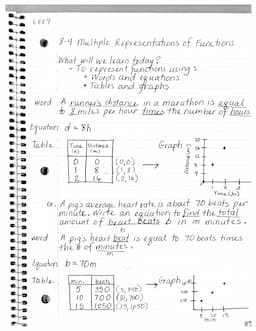 8-4 Multiple Representations of Functions
What will we learn today?
- To represent functions using:
• Words and equations
• Tables and graphs
word A runner's distance in a marathon is equal
to 8 miles per hour times the number of hours
Equation d = 8h
Table Time (h) Distance (m) Graph
0 0 (0,0)
1 8 (1,8)
2 16 (2,16)
Distance (m)
Time (hr)
ex. A pig's average heart rate is about 70 beats per
minute. Write an equation to find the total
amount of heart beats in m minutes.
b
word A pig's heart beat is equal to 70 beats times
the # of minutes.
m
Equation b = 70m
Table min. beats Graph
5 350 (5, 350)
10 700 (10, 700)
15 1050 (15, 1050)
5 10 15
min